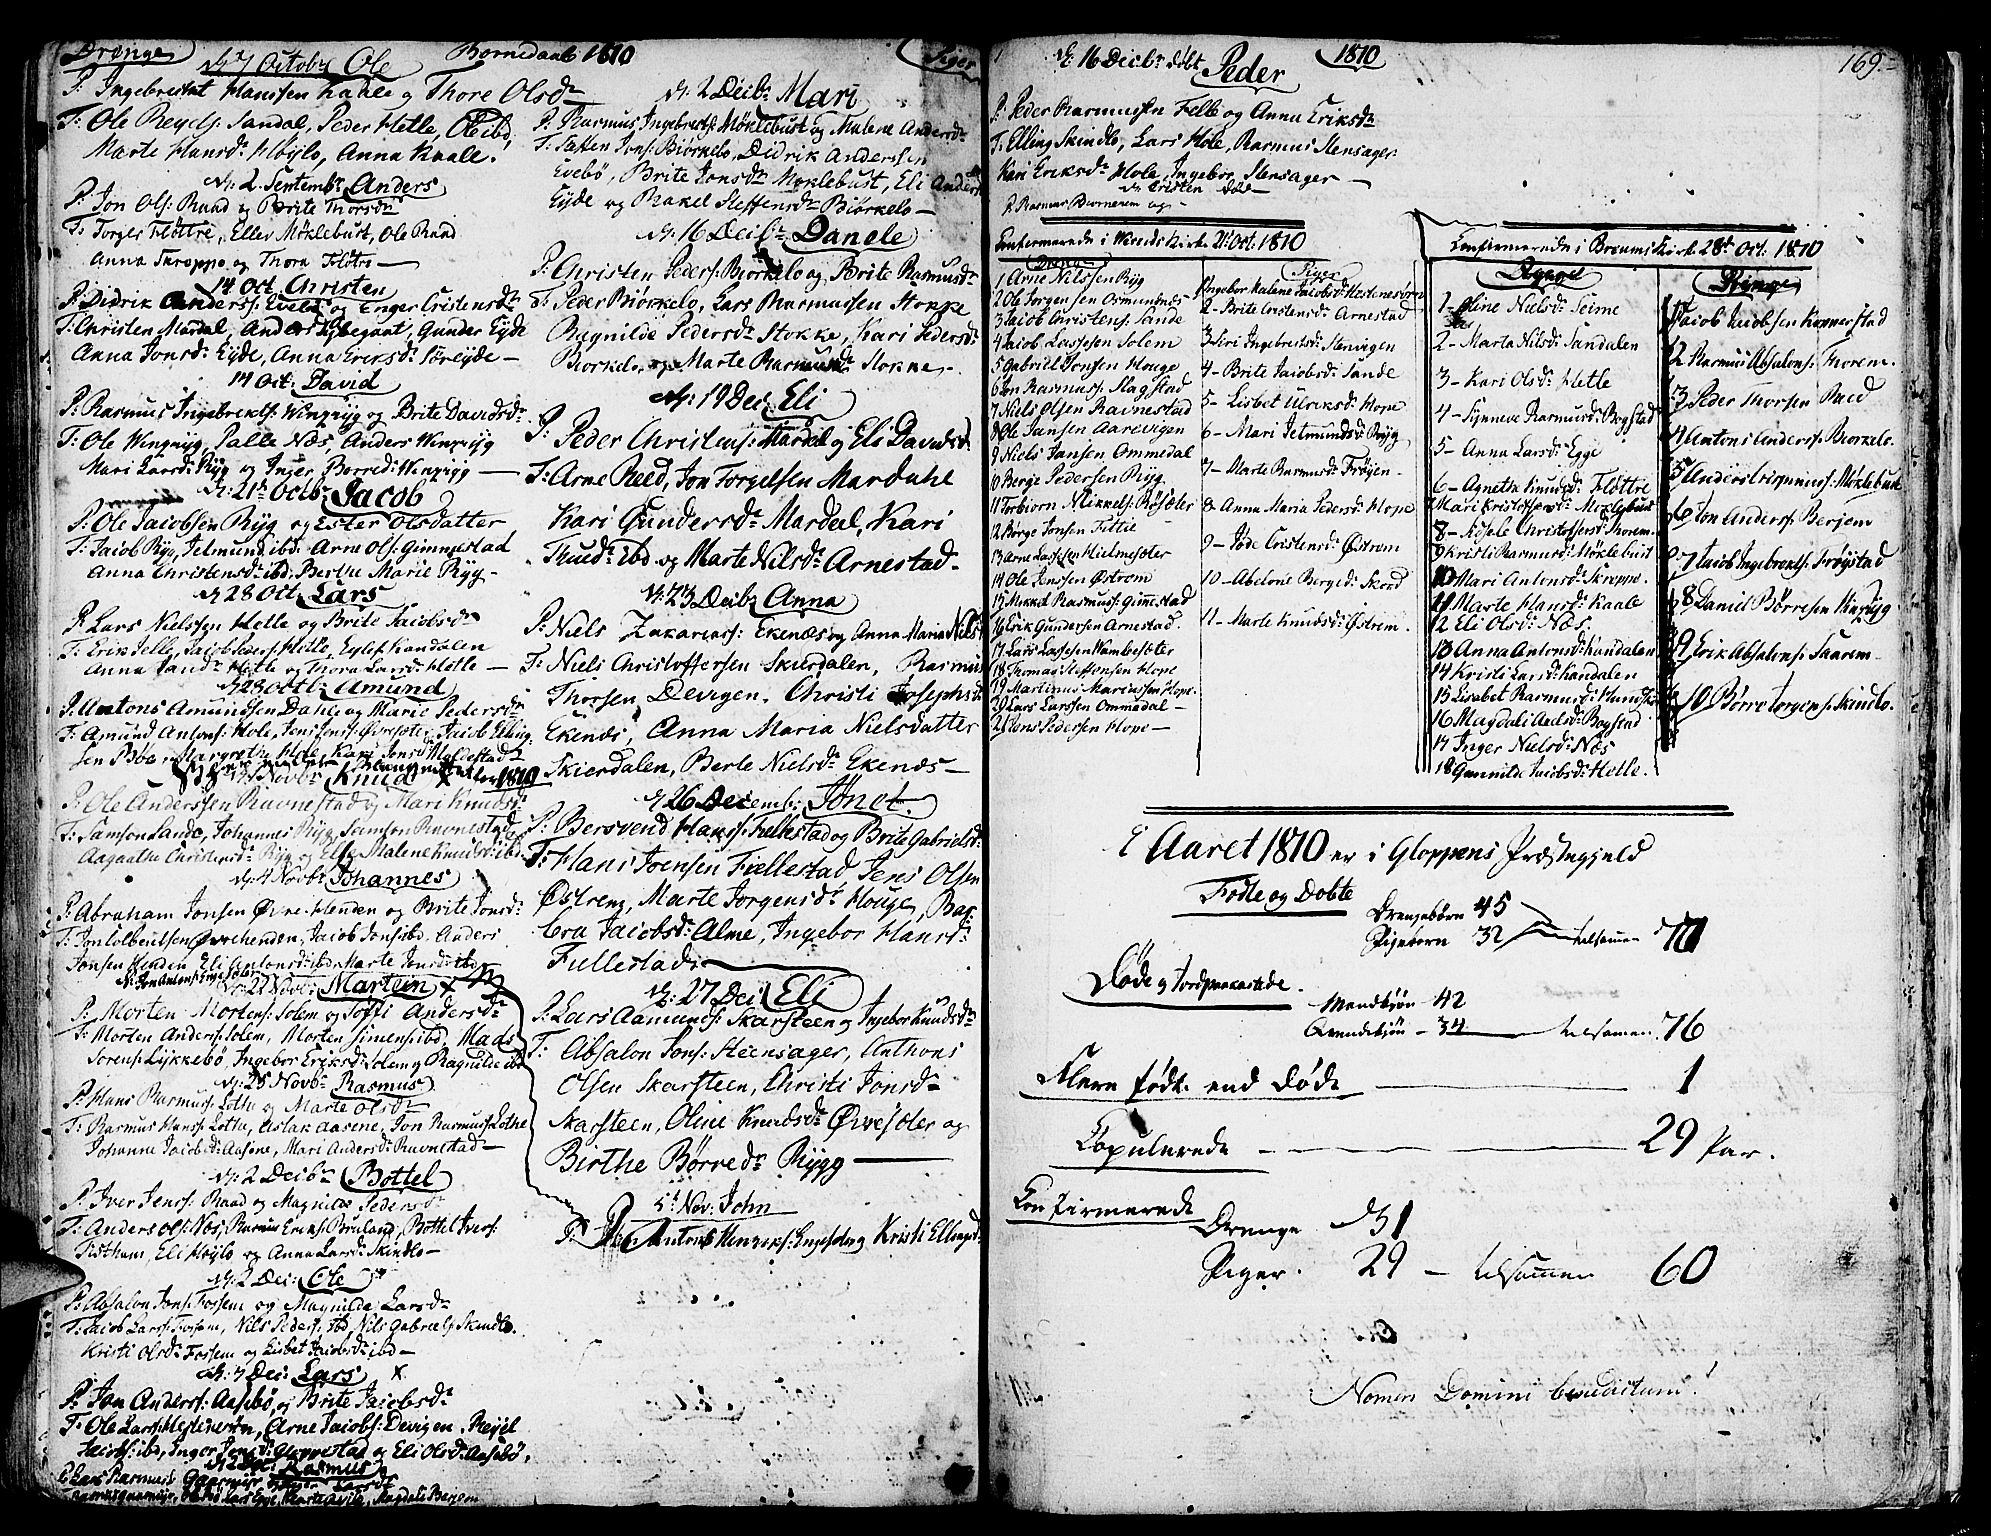 Drænge
Børnedaab 1810
Piger
d. 7 Octobr Ole
P: Ingebregt Hanssen Kaale og Thore Olsdr
F: Ole Reyels: Sandal, Peder Hetle, Ole ibd,
Marte Hansdr Høylo, Anna Kaale.
d. 2 Septembr Anders
P: Jon Ols: Raad og Brite Thorsdr
F: Torger Fløttre, Eller Møklebust, Ole Raad
Anna Skroppo og Thora Fløtre
14 Oct. Christen
P: Didrik Anderss: Evebø og Enger Cristensdr
F: Christen Mardal, Anders Utlegant, Gunder Eyde
Anna Jonsdr Eyde, Anna Eriksdr Føreyde
14 Oct: David
P: Rasmus Ingebrektss: Wingryg og Brite Davidsdr
F: Ole Wingryg, Palle Næs, Anders Wingryg
Mari Larsdr Ryg og Inger Børred: Wingrygg
d. 21 Octbr Jacob
P: Ole Jacobsen Ryg og Ester Olsdatter
F: Jacob Ryg, Jetmund ibd. Arne Ols: Gimmestad
Anna Christensdr ibd, Berthe Marie Ryg
d. 28 Oct: Lars
P: Lars Nielssen Hetle og Brite Jacobsdr
F: Erik Felle, Jacob Peders: Hetle, Eylif Kandalen
Anna Jansdr Hetle og Thora Larsdr Hetle
d. 28 Octb: Amund
P. Antons Amundssen Dahle og Marie Pedersdr
F: Amund Antons: Hole, Jens Jens:, Jacob Elling-
sen Bøe, Margrethe Hole, Kari Jonsdr Moldestad
Novbr Knud 1810
P: Ole Anderssen Ravnestad og Mari Knudsdr
F: Samson Sande, Johannes Ryg, Samson Ravnestad
Aagaathe Christensdr Ryg og Else Malene Knudsdr ibd
d. 4 Novbr Johannes
P: Abraham Jonsen Øvre-Henden og Brite Jonsdr
F: Jon Colbentsen Øvrehenden, Jacob Jons: ibd. Anders
Jonsen Henden, Eli Antonsdr ibd, Marte Jonsdr ibd
d. 21 Novb: Martein
P: Morten Mortens: Solem og Søffi Andersdr
F: Morten Anderss: Solem, Morten Simens: ibd, Mads
Sørens: Lykkebø, Ingebor Eriksdr Solem og Ragnilde ibd
d. 25 Novbr Rasmus
P: Hans Rasmuss: Lothe og Marte Olsdr
F: Rasmus Hanss: Lothe, Aslak Aasene, Jon Rasmuss: Lothe
Johanne Jacobsdr Aasene, Mari Andersdr Ravnestad
d. 2 Decbr Bottel
P: Iver Jenss: Raad og Magnilde Pedersdr
F: Anders Ols: Næs, Rasmus Eriks: Bruland, Bottel Ivers:
Fistham, Eli Høylo og Anna Larsdr Skindlo
d. 2 Dec: Ole
P: Absalon Jons: Fossem og Magnilde Larsdr
F: Jacob Larss: Fossem, Nils Peders: ibd, Nils Gabriels: Skindlo.
Kristi Olsdr Fossem og Lisbet Jacobsdr ibd
d. 7 Dec: Lars
P: Jon Anderss: Aasebø, og Brite Jacobsdr
F: Ole Larss: Hestenesøen, Arne Jacobs: Devigen, Reyel
Jacobs: ibd, Inger Jonsdr Gloppestad og Eli Olsdr Aasebø.
Rasmus
P: Lars Rasmuss: Gaarmyr
d. 2 Decbr Mari
P. Rasmus Ingebrets: Møklebust og Malene Andersdr
F: Steffen Jons: Biørkelo, Didrik Anderssen
Evebø, Brite Jonsdr Møklebust, Eli Andersdr
Eyde og Rakel Steffensdr Biørkelo
d. 16 Decbr Danele
P: Christen Peders: Biørkelo og Brite Rasmusdr
F: Peder Biørkelo, Lars Rasmussen Stokke
Ragnilde Pedersdr Stokke, Kari Pedersdr
Biørkelo, og Marte Rasmusdr Stokke.
d. 19 Dec: Eli
P: Peder Christens: Mardal og Eli Davidsd:
F: Arne Reed, Jon Torgelsen Mardahl
Kari Gundersdr Mardal, Kari
Knudsdr ibd og Marte Nilsdr Arnestad.
d. 23 Decbr Anna
P: Niels Zakarias: Ekenæs og Anna Maria Nielsdr
F: Niels Christoffersen Skierdalen, Rasmus
Thorsen Devigen. Christi Josephsdr
Ekenæs, Anna Maria Nielsdatter
Skierdalen, Berte Nielsdr Ekenæs
d. 26 Decemb: Jonet
P: Bersvend Hanss: Fullestad og Brite Gabrielsdr
F: Hans Joensen Fullestad, Jens Olsen
Østrem, Marte Jorgensdr Houge, Bar-
bra Jacobsdr Alme, Ingebor Hansdr
Fullestad.
d. 27 Dec: Eli
P: Lars Aamunds: Skarsteen og Ingebor Knudsdr
F: Absalon Jons: Steensager, Anthons
Olsen Skarsteen, Christi Jonsdr
Skarsteen, Oline Knudsdr Øvresøter og
Birthe Børredr Rygg
5t Nov: John
P: Antons Henriks: Engesdeg Kristi Ellingsd:
d. 16 Decbr døbt Peder
1810
169.
P: Peder Rasmussen Felle og Anna Eriksdr
F: Elling Skindlo, Lars Hole, Rasmus Stensager
Kari Eriksdr Hole, Ingebor Stensager
P. Rasmus Biørnerem og
Confirmerede i Wereds Kirke 21 Oct. 1810
Drenge
1 Arne Nilssen Ryg
2 Ole Jorgensen Osmundnæs
3 Jacob Christens: Sande
4 Jacob Lassesen Solem
5 Gabriel Jonsen Houge
6 Jon Rasmuss: Slagstad
7 Niels Olsen Ravnestad
8 Ole Jansen Aarevigen
9 Niels Jansen Ommedal
10 Berge Pedersen Ryg
11 Torbiørn Mikkels: Røysæter
12 Børge Jonsen Fittie
13 Arne Lassesen Hielmesøter
14 Ole Jenssen Østrem
15 Mikkel Rasmuss: Gimestad
16 Erik Gundersen Arnestad
17 Lars Lassesen Wambesøter
18 Thomas Steffensen Hope
19 Martinus Mariassen Hope
20 Lars Larssen Ommedal
21 Hans Pedersen Hope
Piger
1 Ingebor Malene Jacobsdr Hestenesøren
2 - Brite Cristensdr Arnestad
3 Siri Ingebretsdr Stenvigen
4 - Brite Jacobsdr Sande
5 - Lisbet Ulriksdr Hope
6 - Mari Jetmundsdr Ryg
7 - Marte Rasmusdr Frøyen
8 Anna Maria Pedersdr Hope
9 - Jøde Cristensdr Østrem
10 - Abelone Bergedr Skord
11 - Marte Knudsdr Østrem.
Confirmerede i Breums Kirke 28t Oct. 1810
Piger
1 - Oline Nielsdr Seime
2 - Marta Nilsdr Sandalen
3 - Kari Olsdr Hetle
4 - Synneve Rasmusdr Bogstad
5 - Anna Larsdr Egge
6 - Agnetha Knudsdr Fløttre
7 Mari Kristoffersdr Moklebust
8 - Christoffersdr Thorem
9 Kristi Rasmusdr Møklebust
10 Mari Antonsdr Skroppe
11 Marte Hansdr Kaale
12 Eli Olsdr Næs
13 Anna Antonsdr Kandalen
14 Kristi Larsdr Kandalen
15 Lisabet Rasmusdr
16 Magdali Andsdr Bogstad
17 Inger Nielsdr Næs
18 Gunnilde Jacobsdr Hetle.
Drænge
1 Jacob Jacobsen Kopperstad
2 Rasmus Absalons: Thorem
3 Peder Thorsen Raad
4 Antons Anderss: Biørkelo.
5 Anders Crispinus: Møklebust
6 Jon Anderss: Berjem
7 Jacob Ingebrektss: Frøystad
8 Daniel Børresen Wingryg
9 Erik Absalons: Thorem
10 Børre Jorgens: Skindlo.
I Aaret 1810 er i Gloppens Præstegjeld
Fødte og Døbte
Drengebørn 45
Pigebørn 32
tilsamen 77
Døde og Jordpaakastede.
Mandkiøn 42
Qvindekiøn - 34
tilsammen 76
Flere fødte end døde 1
Copulerede 29 Par.
Confirmerede
Drenge 31
Piger. 29 - tilsammen 60
Nomen Domini benedictum!